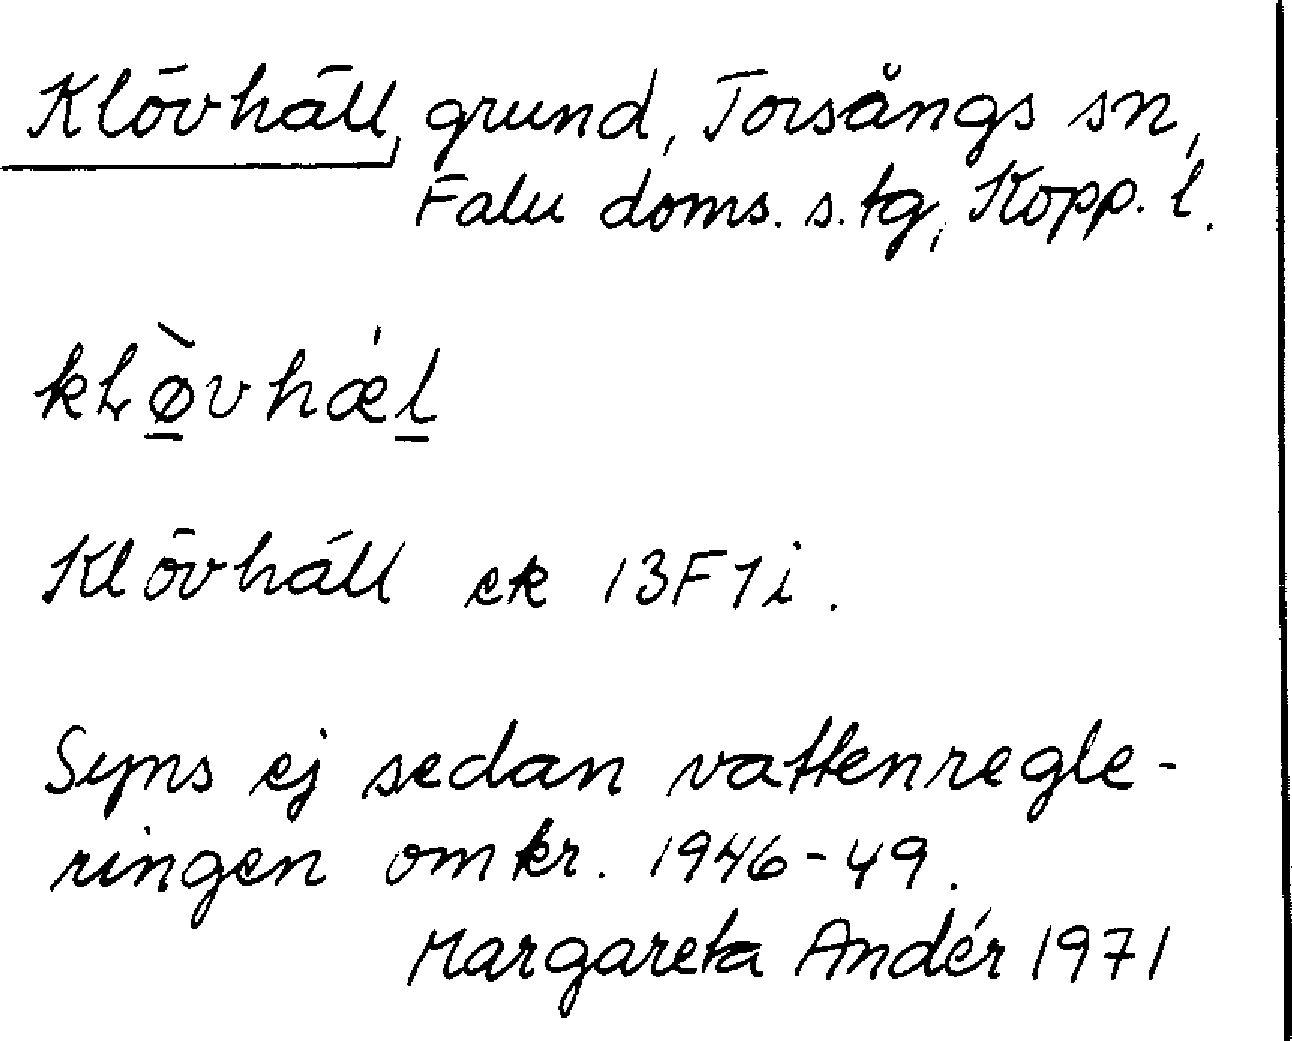 Klövhäll, grund, Torsångs sn,
Falu doms. s. tg, Kopp. l.
kḷø̠̀vhǽl̠
Klövhäll ek 13F1i.
Syns ej sedan vattenregle-
ringen omkr. 1946-49.
Margareta Andér 1971